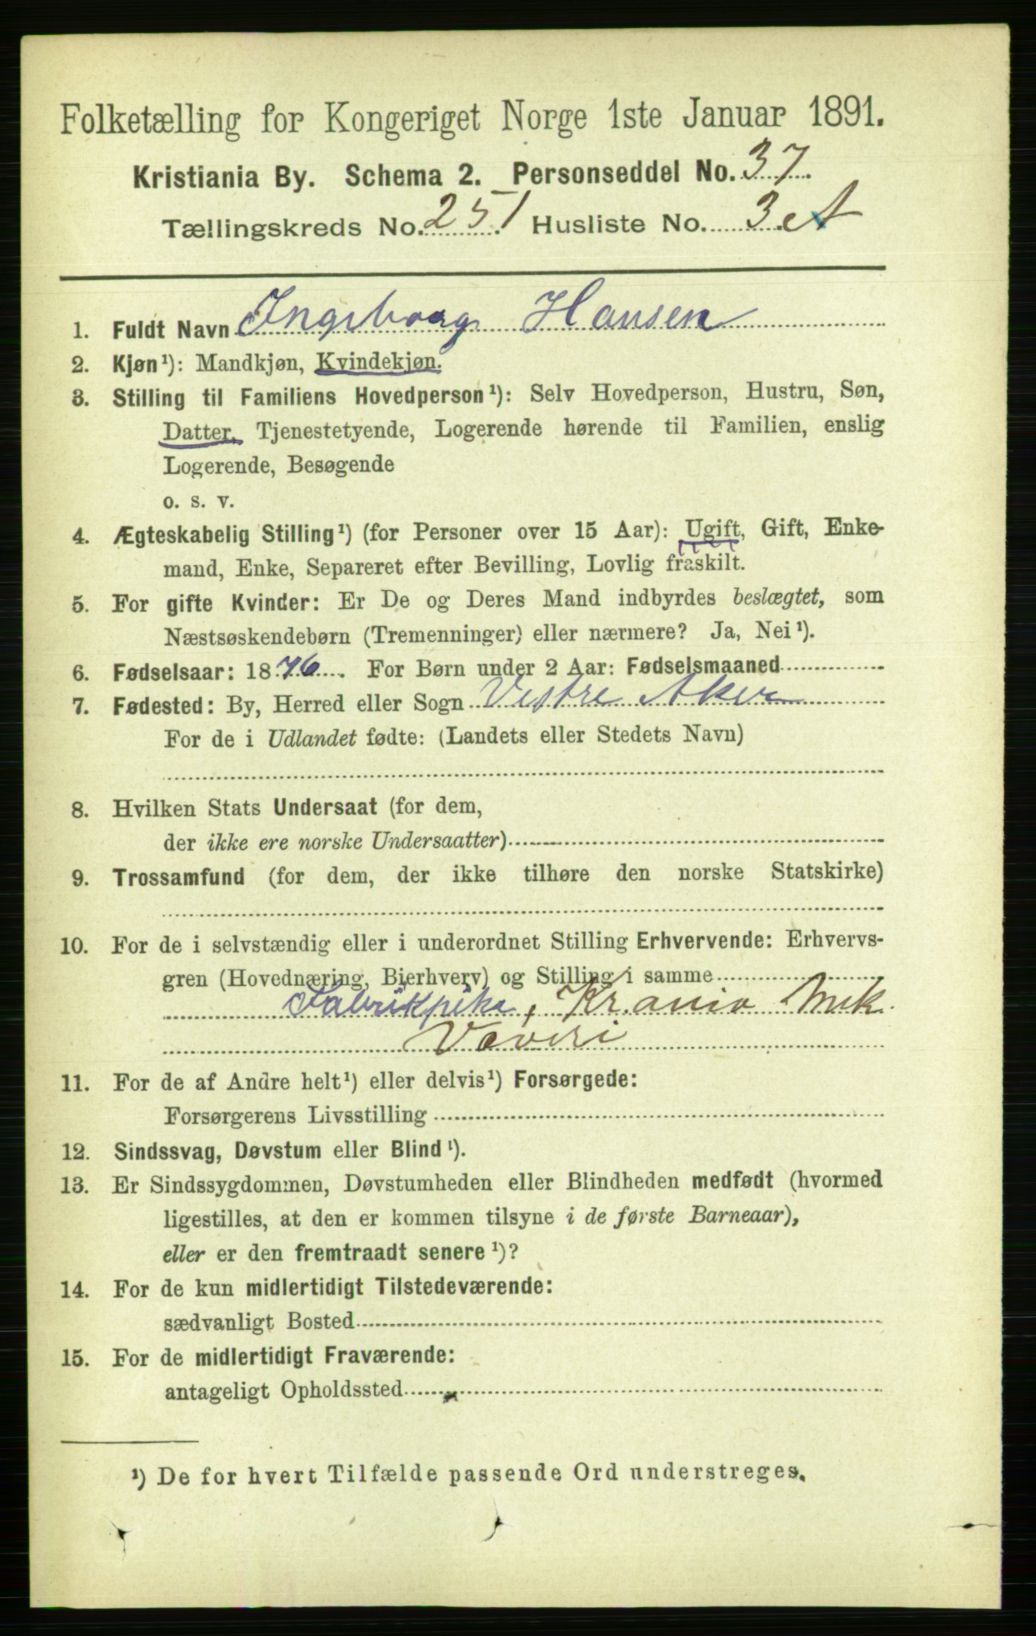 Folketælling for Kongeriget Norge 1ste Januar 1891.
Kristiania By. Schema 2. Personseddel No. 37.
Tællingskreds No. 251 Husliste No. 3.A
1. Fuldt Navn Ingeborg Hansen
2. Kjøn¹): Mandkjøn, Kvindekjøn.
3. Stilling til Familiens Hovedperson¹): Selv Hovedperson, Hustru, Søn,
Datter, Tjenestetyende, Logerende hørende til Familien, enslig
Logerende, Besøgende
o. s. v.
4. Ægteskabelig Stilling¹) (for Personer over 15 Aar): Ugift, Gift, Enke-
mand, Enke, Separeret efter Bevilling, Lovlig fraskilt.
5. For gifte Kvinder: Er De og Deres Mand indbyrdes beslægtet, som
Næstsøskendebørn (Tremenninger) eller nærmere? Ja, Nei¹).
6. Fødselsaar: 1876. For Børn under 2 Aar: Fødselsmaaned
7. Fødested: By, Herred eller Sogn Vestre Aker
For de i Udlandet fødte: (Landets eller Stedets Navn)
8. Hvilken Stats Undersaat (for dem,
der ikke ere norske Undersaatter)
9. Trossamfund (for dem, der ikke tilhøre den norske Statskirke)
10. For de i selvstændig eller i underordnet Stilling Erhvervende: Erhvervs-
gren (Hovednæring, Bierhverv) og Stilling i samme
Fabrikpike, Kr.ania Mek.
Væveri
11. For de af Andre helt¹) eller delvis¹) Forsørgede:
Forsørgerens Livsstilling
12. Sindssvag, Døvstum eller Blind¹).
13. Er Sindssygdommen, Døvstumheden eller Blindheden medfødt (hvormed
ligestilles, at den er kommen tilsyne i de første Barneaar),
eller er den fremtraadt senere¹)?
14. For de kun midlertidigt Tilstedeværende:
sædvanligt Bosted
15. For de midlertidigt Fraværende:
antageligt Opholdssted
¹) De for hvert Tilfælde passende Ord understreges.